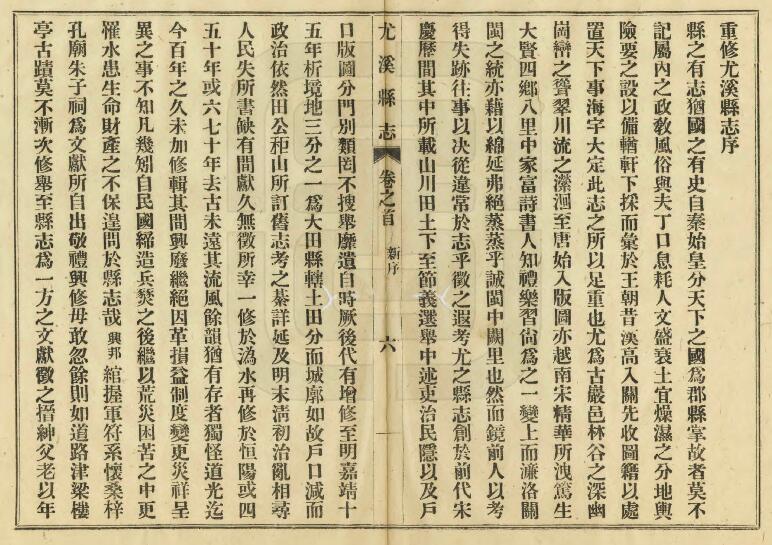 重修尤溪縣志序
縣之有志猶國之有史自秦始皇分天下之國爲郡縣掌故者莫不
記屬內之政敎風俗與夫丁口息耗人文盛衰土宜燥濕之分地輿
險要之設以備輶軒下採而彙於王朝昔漢高入關先收圖籍以處
置天下事海宇大定此志之所以足重也尤爲古巖邑林谷之深幽
崗巒之聳翠川流之瀠洄至唐始入版圖亦越南宋精華所洩篤生
大賢四鄉八里中家富詩書人知禮樂習尙爲之一變上而濂洛關
閩之統亦藉以綿延弗絕蒸蒸乎誠閩中闕里也然而鏡前人以考
得失跡往事以决從違常於志乎徵之遐考尤之縣志創於前代宋
慶歷間其中所載山川田土下至節義選舉中述吏治民隱以及戶
尤溪縣志
卷之首
新序
六
口版圖分門別類罔不搜舉靡遺自時厥後代有增修至明嘉靖十
五年析境地三分之一爲大田縣轄土田分而城廓如故戶口減而
政治依然田公秬山所訂舊志考之綦詳延及明末淸初治亂相尋
人民失所書缺有間獻久無徵所幸一修於溈水再修於恒陽或四
五十年或六七十年去古未遠其流風餘韻猶有存者獨怪道光迄
今百年之久未加修輯其間興廢繼絕因革損益制度變更災祥呈
異之事不知凡幾矧自民國締造兵燹之後繼以荒災困苦之中更
罹水患生命財產之不保遑問於縣志哉興邦綰握軍符系懷桑梓
孔廟朱子祠爲文獻所自出敬禮興修毋敢忽餘則如道路津梁樓
亭古蹟莫不漸次修舉至縣志爲一方之文獻徵之搢紳父老以年